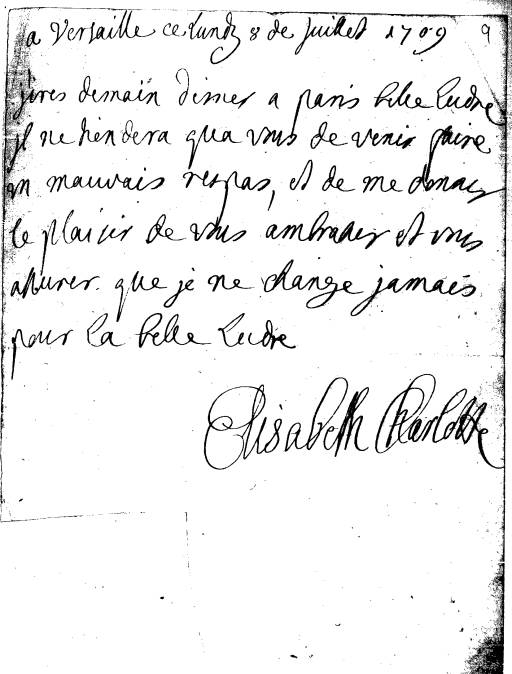 a Versaille ce lundy 8 de Juillet 1709 9
jires demain disner a paris belle Ludre
jl ne tiendera qua vous de venir faire
un mauvais respas, et de me donner
le plaisir de vous ambrasser et vous
assurer que je ne change jamais
pour La belle Ludre
Elisabeth Charlotte